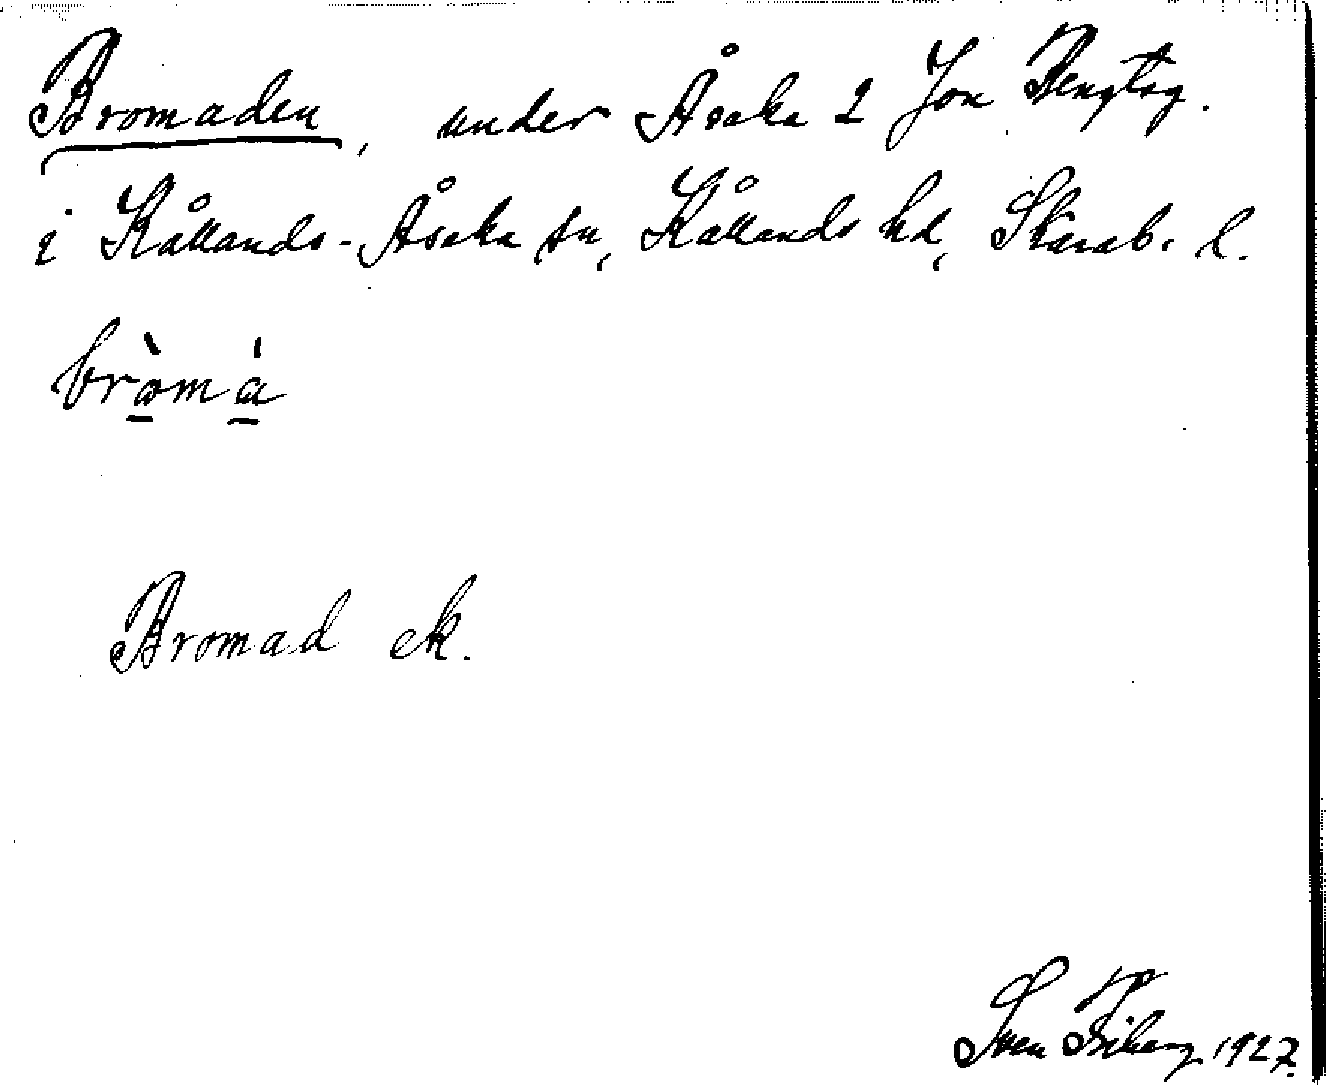 Bromaden, under Åsaka 2 Jon Bengtsg.
i Kållands-Åsaka sn, Kållands hd, Skarab. l.
bròmà
Bromad ek.
Sven 1927.